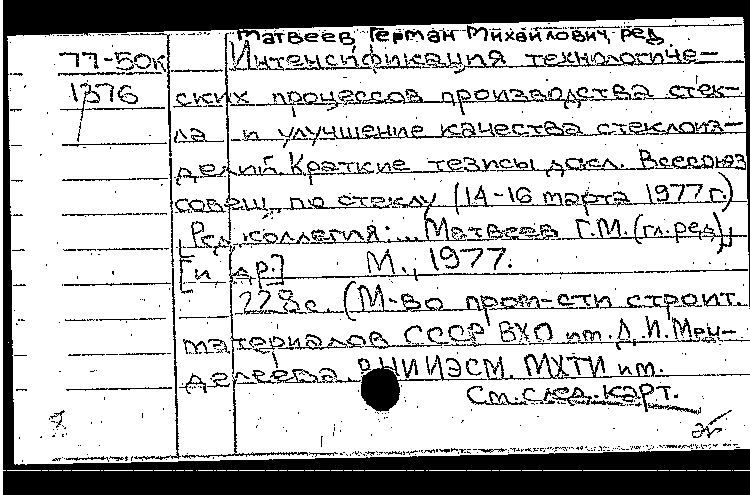 Матвеев, Герман Михайлович, ред.
77-50к Интенсификация технологиче-
1376 ских процессов производства стек-
ла и улучшение качества стеклоиз-
делий. Краткие тезисы докл. Всесоюз
совещ. по стеклу (14-16 марта 1977 г.)
Ред. коллегия: ... Матвеев Г.М. (гл. ред),
[и др.] М., 1977.
228 с. (М-во пром-сти строит.
материалов СССР ВХО им. Д.И. Мен-
делеева. ВНИИЭСМ. МХТИ им.
См. след. карт.